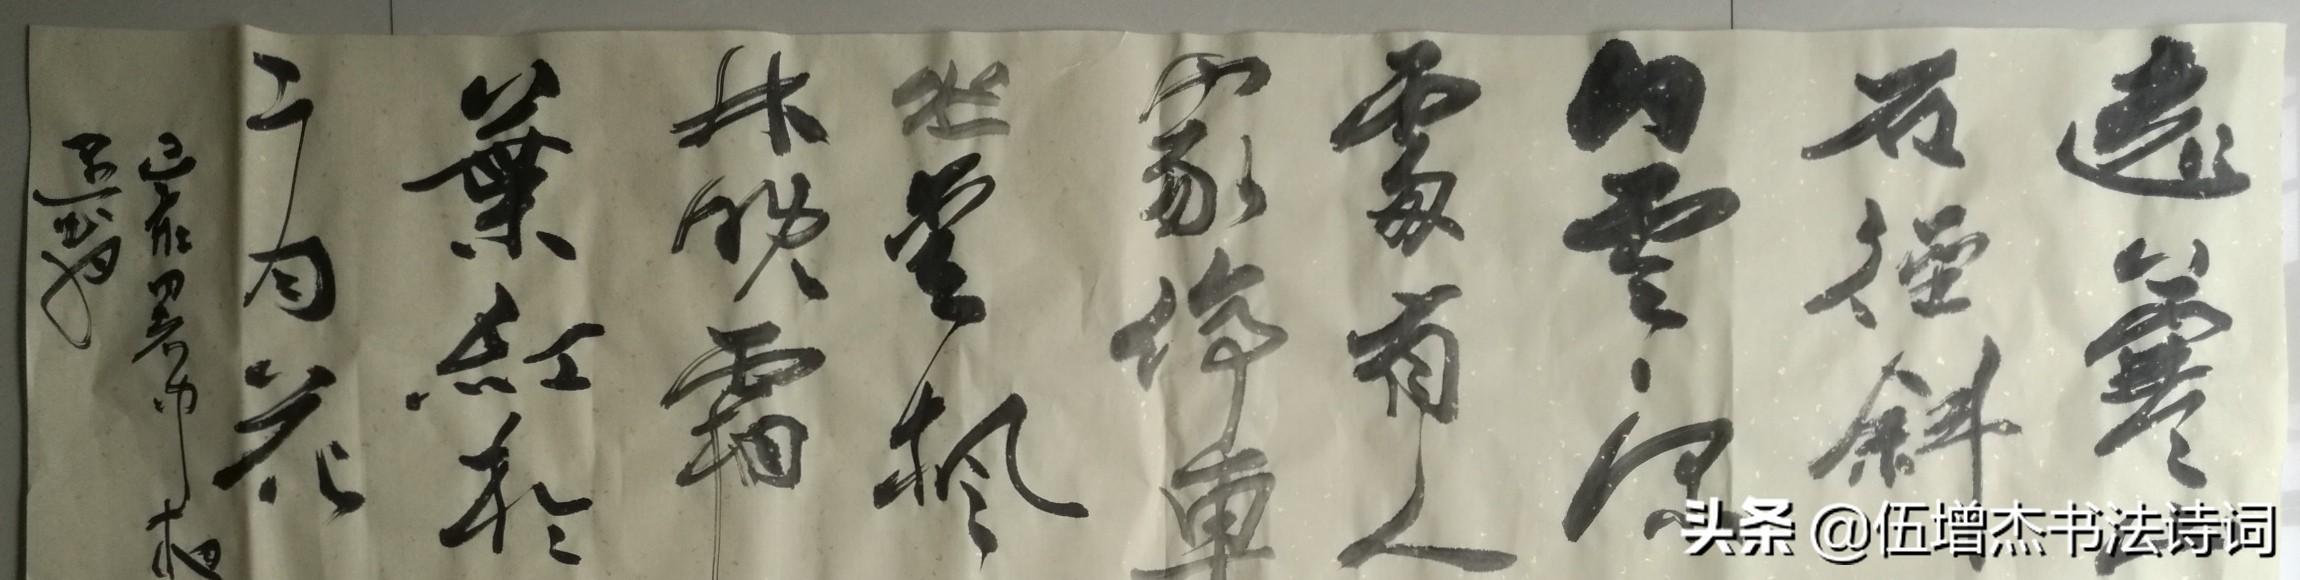 遠寒
石徑斜
白雲深
處有人
家停車
坐愛楓
林晚霜
葉紅於
二月花
己亥暑中
头条 @伍增杰书法诗词